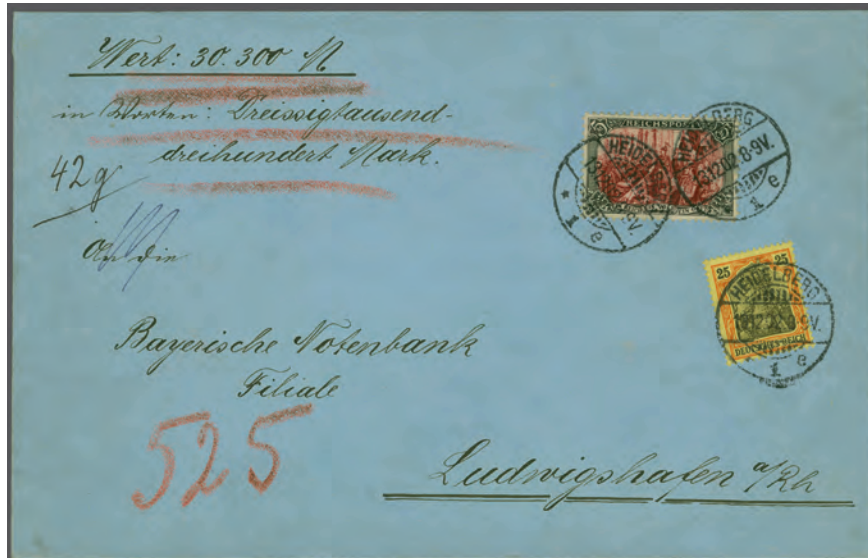 Wert: 30.300 M
in Worten: Dreissigtausend-
dreihundert Mark.
42 g
An die
Bayerische Notenbank
Filiale
525
Ludwigshafen a/Rh
REICHSPOST
HEIDELBERG
13.12.02.8-9V.
* 1 e
25 25
DEUTSCHES REICH
HEIDELBERG
13.12.02.8-9V.
* 1 e